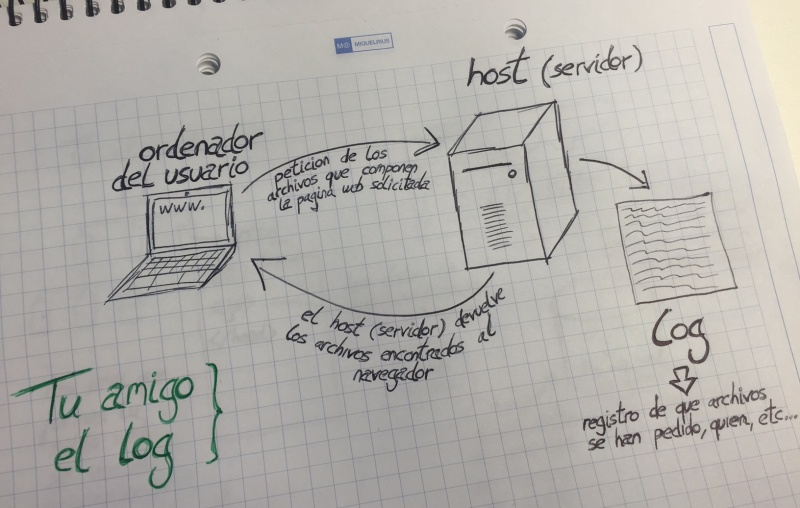 MIQUELRIUS
host (servidor)
ordenador
del usuario
www.
peticion de los
archivos que componen
la pagina web solicitada
el host (servidor) devuelve
los archivos encontrados al
navegador
Log
registro de que archivos
se han pedido, quien, etc...
Tu amigo
el log